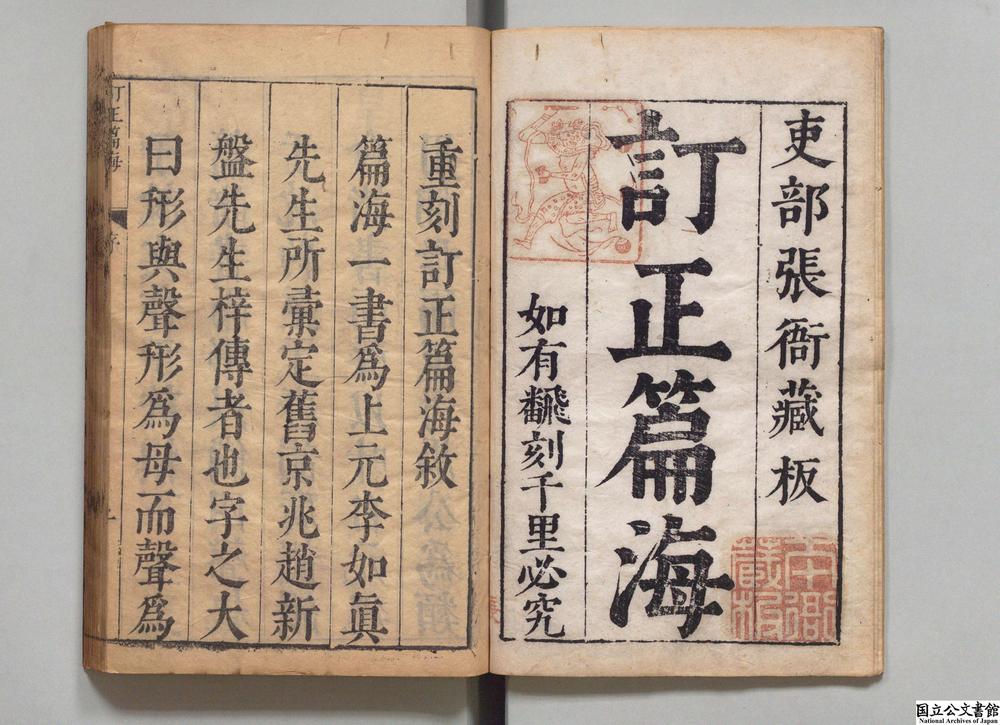 吏部張衙藏板
訂正篇海
如有飜刻千里必究
重刻訂正篇海敘
篇海一書爲上元李如眞
先生所彙定舊京兆趙新
盤先生梓傳者也字之大
曰形與聲形爲母而聲爲
訂正篇海
序
国立公文書館
National Archives of Japan